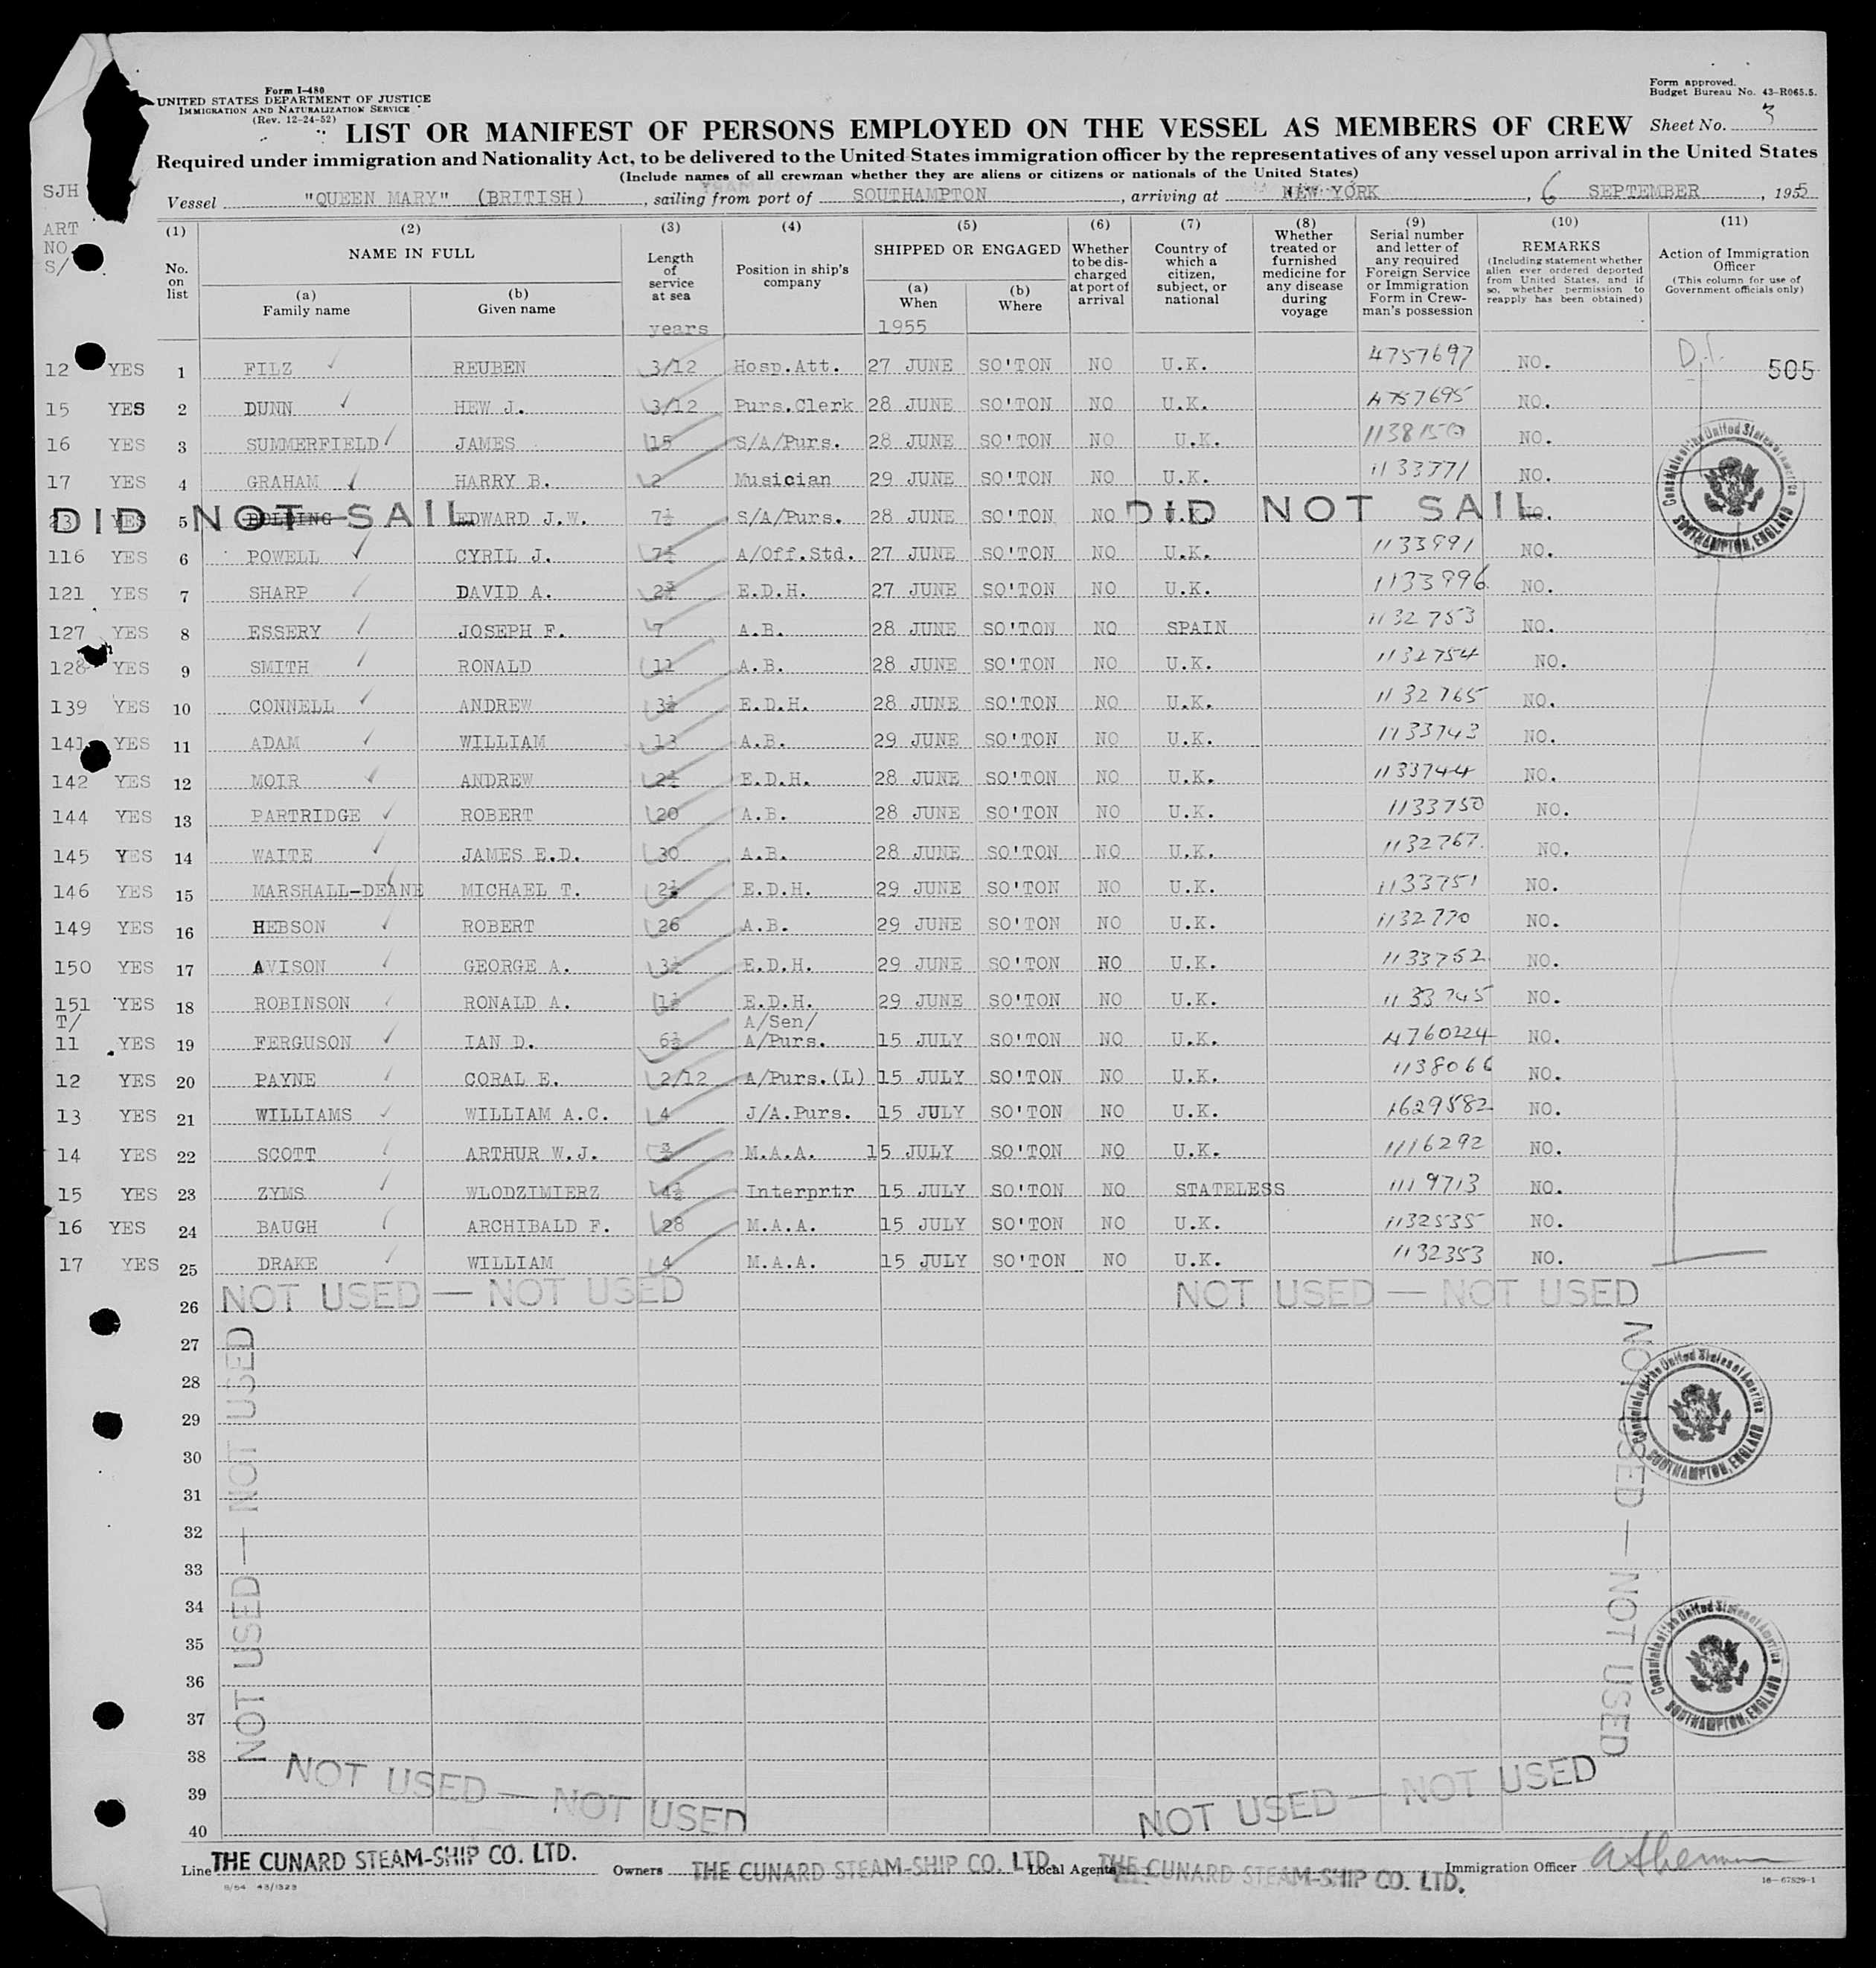 Form I-480
UNITED STATES DEPARTMENT OF JUSTICE
IMMIGRATION AND NATURALIZATION SERVICE
(Rev. 12-24-52)
Form approved.
Budget Bureau No. 43-R065.5.
LIST OR MANIFEST OF PERSONS EMPLOYED ON THE VESSEL AS MEMBERS OF CREW Sheet No. 3
Required under immigration and Nationality Act, to be delivered to the United States immigration officer by the representatives of any vessel upon arrival in the United States
(Include names of all crewman whether they are aliens or citizens or nationals of the United States)
SJH
Vessel "QUEEN MARY" (BRITISH), sailing from port of SOUTHAMPTON, arriving at NEW YORK, 6 SEPTEMBER, 1955
ART
NO.
S/
(1) No. on list
(2) NAME IN FULL
(a) Family name
(b) Given name
(3) Length of service at sea
years
(4) Position in ship's company
(5) SHIPPED OR ENGAGED
(a) When
1955
(b) Where
(6) Whether to be discharged at port of arrival
(7) Country of which a citizen, subject, or national
(8) Whether treated or furnished medicine for any disease during voyage
(9) Serial number and letter of any required Foreign Service or Immigration Form in Crewman's possession
(10) REMARKS (Including statement whether alien ever ordered deported from United States, and if so, whether permission to reapply has been obtained)
(11) Action of Immigration Officer (This column for use of Government officials only)
12 YES 1 FILZ REUBEN 3/12 Hosp.Att. 27 JUNE SO'TON NO U.K. 4757697 NO. D.I. 505
15 YES 2 DUNN HEW J. 3/12 Purs.Clerk 28 JUNE SO'TON NO U.K. 4757695 NO.
16 YES 3 SUMMERFIELD JAMES 15 S/A/Purs. 28 JUNE SO'TON NO U.K. NO.
17 YES 4 GRAHAM HARRY B. 2 Musician 29 JUNE SO'TON NO U.K. 1133771 NO.
23 YES 5 BOLDING EDWARD J.W. 7½ S/A/Purs. 28 JUNE SO'TON NO U.K. NO.
DID NOT SAIL DID NOT SAIL
116 YES 6 POWELL CYRIL J. 7½ A/Off.Std. 27 JUNE SO'TON NO U.K. 1133991 NO.
121 YES 7 SHARP DAVID A. 2¾ E.D.H. 27 JUNE SO'TON NO U.K. 1133996 NO.
127 YES 8 ESSERY JOSEPH F. 7 A.B. 28 JUNE SO'TON NO SPAIN 1132753 NO.
128 YES 9 SMITH RONALD 11 A.B. 28 JUNE SO'TON NO U.K. 1132754 NO.
139 YES 10 CONNELL ANDREW 3½ E.D.H. 28 JUNE SO'TON NO U.K. 1132765 NO.
141 YES 11 ADAM WILLIAM 13 A.B. 29 JUNE SO'TON NO U.K. 1133743 NO.
142 YES 12 MOIR ANDREW 2½ E.D.H. 28 JUNE SO'TON NO U.K. 1133744 NO.
144 YES 13 PARTRIDGE ROBERT 20 A.B. 28 JUNE SO'TON NO U.K. 1133750 NO.
145 YES 14 WAITE JAMES E.D. 30 A.B. 28 JUNE SO'TON NO U.K. 1132767 NO.
146 YES 15 MARSHALL-DEANE MICHAEL T. 2½ E.D.H. 29 JUNE SO'TON NO U.K. 1133751 NO.
149 YES 16 HEBSON ROBERT 26 A.B. 29 JUNE SO'TON NO U.K. 1132770 NO.
150 YES 17 AVISON GEORGE A. 3½ E.D.H. 29 JUNE SO'TON NO U.K. 1133752 NO.
151 YES 18 ROBINSON RONALD A. 1½ E.D.H. 29 JUNE SO'TON NO U.K. 1133745 NO.
T/ A/Sen/
11 YES 19 FERGUSON IAN D. 6½ A/Purs. 15 JULY SO'TON NO U.K. 4760224 NO.
12 YES 20 PAYNE CORAL E. 2/12 A/Purs.(L) 15 JULY SO'TON NO U.K. 1138066 NO.
13 YES 21 WILLIAMS WILLIAM A.C. 4 J/A.Purs. 15 JULY SO'TON NO U.K. 1629582 NO.
14 YES 22 SCOTT ARTHUR W.J. M.A.A. 15 JULY SO'TON NO U.K. 1116292 NO.
15 YES 23 ZYMS WLODZIMIERZ 4½ Interprtr 15 JULY SO'TON NO STATELESS 1119713 NO.
16 YES 24 BAUGH ARCHIBALD F. 28 M.A.A. 15 JULY SO'TON NO U.K. 1132535 NO.
17 YES 25 DRAKE WILLIAM 4 M.A.A. 15 JULY SO'TON NO U.K. 1132353 NO.
26 NOT USED — NOT USED NOT USED — NOT USED
27
28
29
30
31
32
33
34
35
36
37
38
39
40
NOT USED — NOT USED
NOT USED — NOT USED
NOT USED — NOT USED
NOT USED — NOT USED
Consulate of the United States of America
SOUTHAMPTON, ENGLAND
Consulate of the United States of America
SOUTHAMPTON, ENGLAND
Consulate of the United States of America
SOUTHAMPTON, ENGLAND
Line THE CUNARD STEAM-SHIP CO. LTD. Owners THE CUNARD STEAM-SHIP CO. LTD. Local Agents THE CUNARD STEAM-SHIP CO. LTD. Immigration Officer
16-67829-1